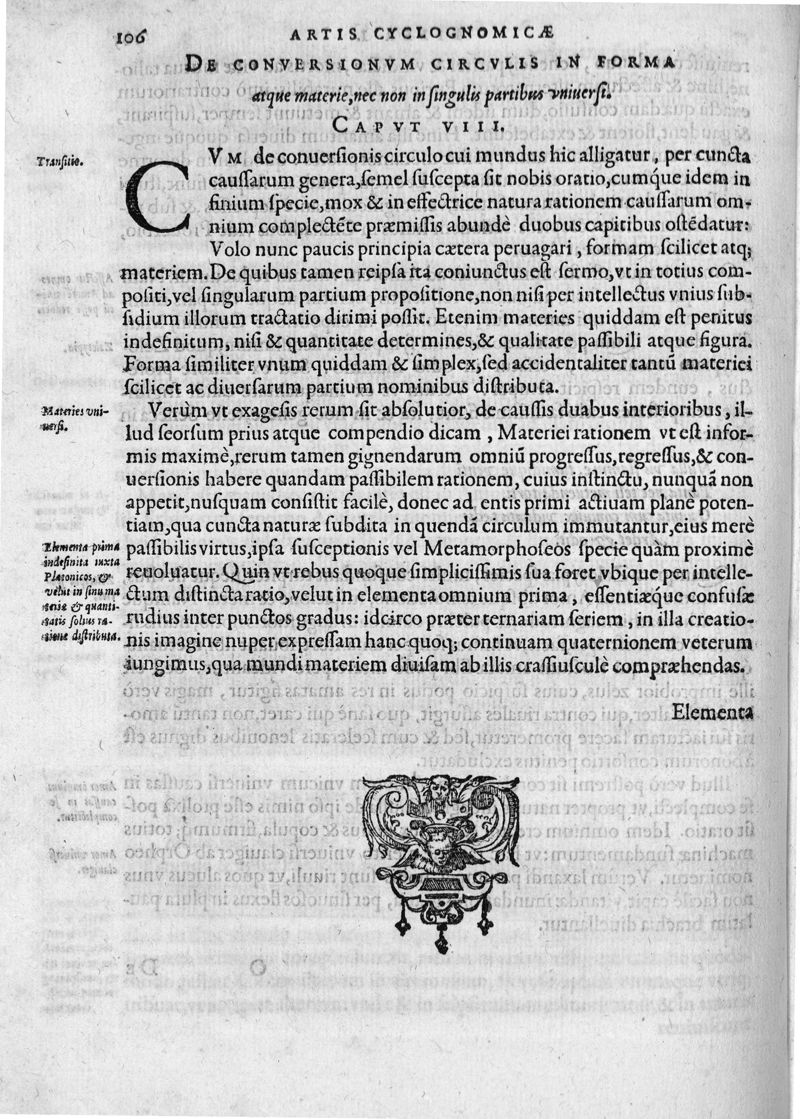 106
ARTIS CYCLOGNOMICÆ
DE CONVERSIONVM CIRCVLIS IN FORMA
atque materie, nec non in singulis partibus vniuersi.
CAPVT VIII.
Transitio.
CVM de conuersionis circulo cui mundus hic alligatur, per cuncta
caussarum genera, semel suscepta sit nobis oratio, cumq́ue idem in
finium specie, mox & in effectrice natura rationem caussarum om-
nium complectẽte præmissis abundè duobus capitibus ostẽdatur:
Volo nunc paucis principia cætera peruagari, formam scilicet atq;
materiem. De quibus tamen reipsa ita coniunctus est sermo, vt in totius com-
positi, vel singularum partium propositione, non nisi per intellectus vnius sub-
sidium illorum tractatio dirimi possit. Etenim materies quiddam est penitus
indefinitum, nisi & quantitate determines, & qualitate passibili atque figura.
Forma similiter vnum quiddam & simplex, sed accidentaliter tantũ materiei
scilicet ac diuersarum partium nominibus distributa.
Materies vni-
uersi.
Verùm vt exagesis rerum sit absolutior, de caussis duabus interioribus, il-
lud seorsum prius atque compendio dicam, Materiei rationem vt est infor-
mis maximè, rerum tamen gignendarum omniũ progressus, regressus, & con-
uersionis habere quandam passibilem rationem, cuius instinctu, nunquã non
appetit, nusquam consistit facilè, donec ad entis primi actiuam planè poten-
tiam, qua cuncta naturæ subdita in quendã circulum immutantur, eius merè
Elementa prima
indefinita iuxta
Platonicos, &
velut in sinu ma
teriæ & quanti-
tatis solius ra-
tione distributa.
passibilis virtus, ipsa susceptionis vel Metamorphoseos specie quàm proximè
reuoluatur. Quin vt rebus quoque simplicissimis sua foret vbique per intelle-
ctum distincta ratio, velut in elementa omnium prima, essentiæque confusæ
rudius inter punctos gradus: idcirco præter ternariam seriem, in illa creatio-
nis imagine nuper expressam hanc quoq; continuam quaternionem veterum
iungimus, qua mundi materiem diuisam ab illis crassiusculè compræhendas.
Elementa